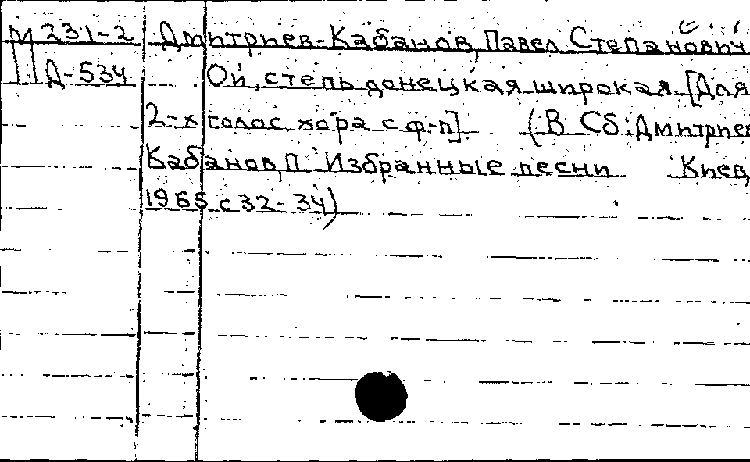 М 231-2 Дмитриев-Кабанов, Павел Степанович
Д-534 Ой, степь донецкая широкая. [Для
2-х голос хора с ф-п]. (В Сб: Дмитриев
Кабанов, П. Избранные песни Киев,
1965 с 32-34)